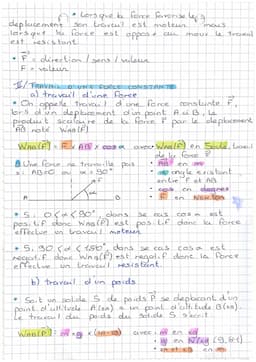 • Lorsque la force favorise le
déplacement son travail est moteur mais
lorsque la force est opposé au mouv le travail
est résistant
• F = direction / sens / valeur
F = valeur
II/ TRAVAIL D'UNE FORCE CONSTANTE
a) travail d'une force
• On appelle travail d'une force constante F,
lors d'un déplacement d'un point A à B, le
produit scalaire de la force F par le déplacement
AB noté WAB(F)
WAB(F) = F x AB x cos α avec WAB(F) en Joule, travail
de la force F
Une force ne travaille pas
si AB=0 ou α = 90°
• AB en m
• α angle existant
entre F et AB
• cos en degrés
• F en Newton
A B
F
α
• Si 0<α<90°, dans se cas cos α est
positif donc WAB(F) est positif donc la force
effectue un travail moteur
• Si 90<α<180°, dans se cas cos α est
négatif donc WAB(F) est négatif donc la force
effectue un travail résistant
b) travail d'un poids
• Soit un solide S de poids P se déplaçant d'un
point d'altitude A(zA) à un point d'altitude B(zB)
le travail du poids du solide S s'écrit
WAB(P) = m x g x (zA - zB) avec • m en kg
• g en N/kg (9,81)
• zA et zB en m